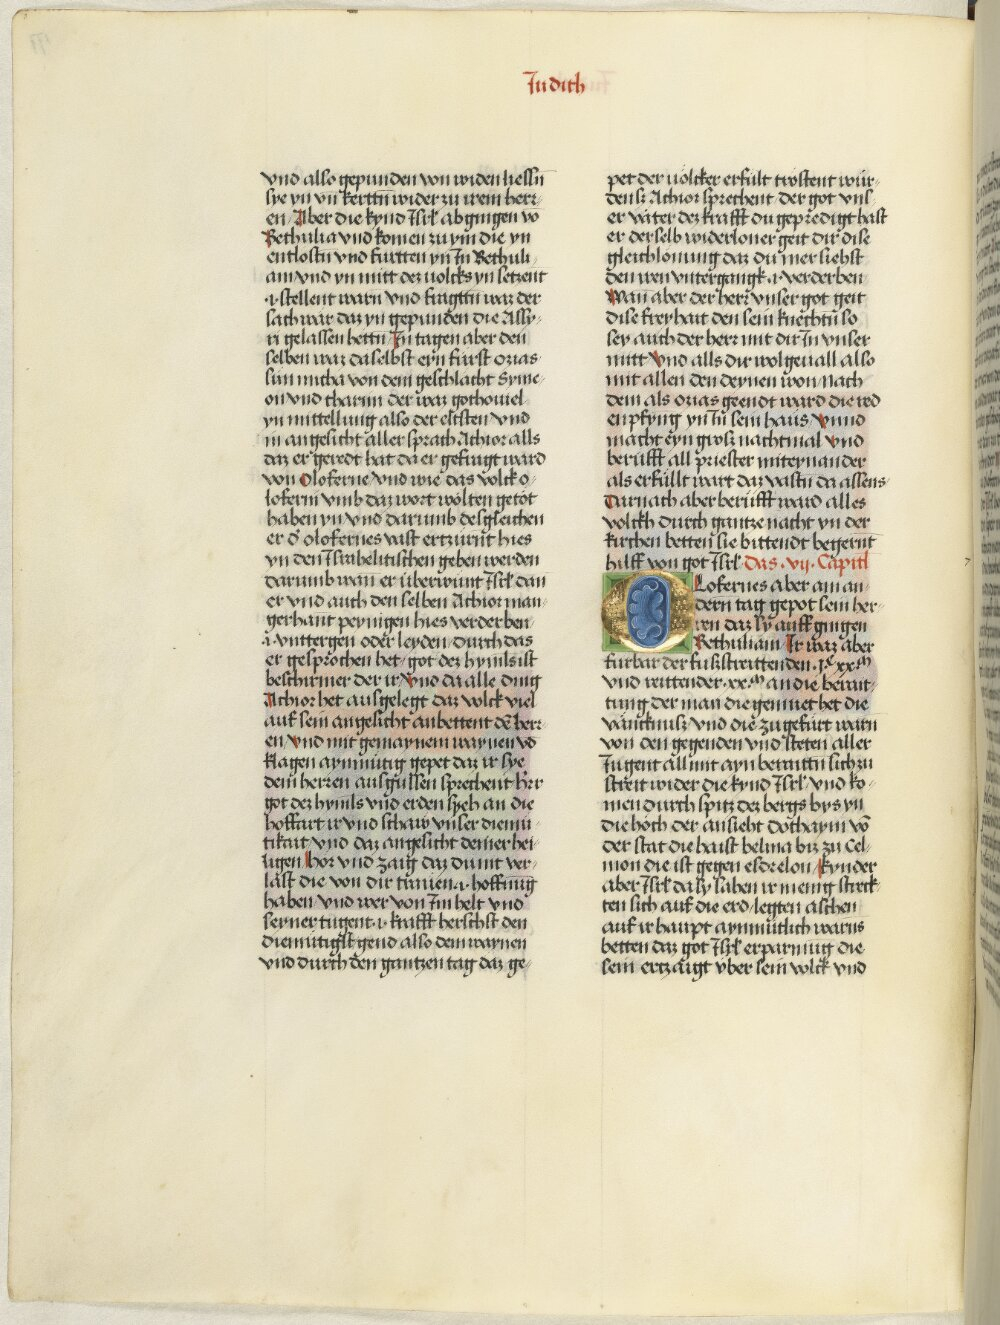 Judith
vnd also gepunden von widen liessn
sye yn vn kerttn wider zu irem herr-
en Aber die kynd Isrl abgingen vo
Bethulia vnd komen zu ym die yn
entlostn vnd furtten yn In Bethuli-
am vnd yn mitt dez uolcks yn setzent
.i. stellent warn vnd fragttn waz der
sach war daz yn gepunden die Assy-
ri gelassen hettn In tagen aber den
selben waz daselbst eyn furst ozias
sun micha von dem geschlacht Syme-
on vnd charmi der waz gothoniel
yn mittellung also der eltsten vnd
in angesicht aller sprach Achior alls
daz er geredt hat da er gefragt ward
von Oloferne vnd wie das volck o-
loferni vmb daz wort wolten getot
haben yn vnd darumb desgleichen
er d olofernes vast erzurnt hies
yn den Israhelitischen geben werden
darumb wan er uberwunt Isrl dan
er vnd auch den selben Achior man-
gerhant peynigen hies verderben
.i. vnttergen oder leyden durch das
er gesprochen het got dez hymls ist
beschirmer der ir Vnd da alle ding
Achior het ausgelegt daz volck viel
auf sein angesicht anbettent den herr-
en Vnd mit gemaynem waynen vd
klagen aynmutig gepet daz ir sye
dem herren ausgussen sprechent Herr
got dez hymls vnd erden syeh an die
hoffart ir vnd schaw vnser diemu-
tikait vnd daz angesicht deiner hei-
ligen Hor vnd zaig daz du nit ver-
last die von dir trauen .i. hoffnug
haben vnd wer von Im helt vnd
seyner tugent .i. krafft herschst den
diemutigst gend also dem waynen
vnd durch den gantzen tag daz ge-
pet der uolcker erfult trostent wur-
den sy Achior sprechent der got vns-
er vater dez krafft du gepredigt hast
er der selb widerloner geit dir dise
gleichlonung daz du mer siehst
den iren vntergangk .i. verderben
Wan aber der herr vnser got geit
dise freyhait den sein knechtn so
sey auch der herr mit dir In vnser
mitt Vnd alls dir wolgeuall also
mit allen den deynen won nach
dem als ozias geendt ward die red
enpfyng yn In sein haus Vnnd
macht eyn gross nachtmal Vnd
berufft all priester miteynander
als erfullt wart daz vastn da assens
Darnach aber berufft ward alles
volckh durch gantze nacht yn der
kirchen betten sie bittendt begernt
hilff von got Isrl Das .vij. Capitl
Olofernes aber am an-
dern tag gepot sein her-
ren daz sy auff gingen
Bethuliam Ir waz aber
furbar der fusstrittenden .Jc xxm
vnd reittender .xx.m an die berait-
tung der man die gemuet het die
vancknuss vnd die zugefurt warn
von den gegenden vnd steten aller
Iugent all mit ayn beraittn sich zu
streit wider die kynd Isrl vnd ko-
men durch spitz dez bergs bys yn
die hoch der ansieht dothaym vo
der stat die haist belma biz zu Cel-
mon die ist gegen esdrelon Kynder
aber Isrl da sy sahen ir menig streck-
ten sich auf die erd legten aschen
auf ir haupt aynmutlich warns
betten daz got Isrl erparmug die
sein ertzaigt vber sein volck vnd